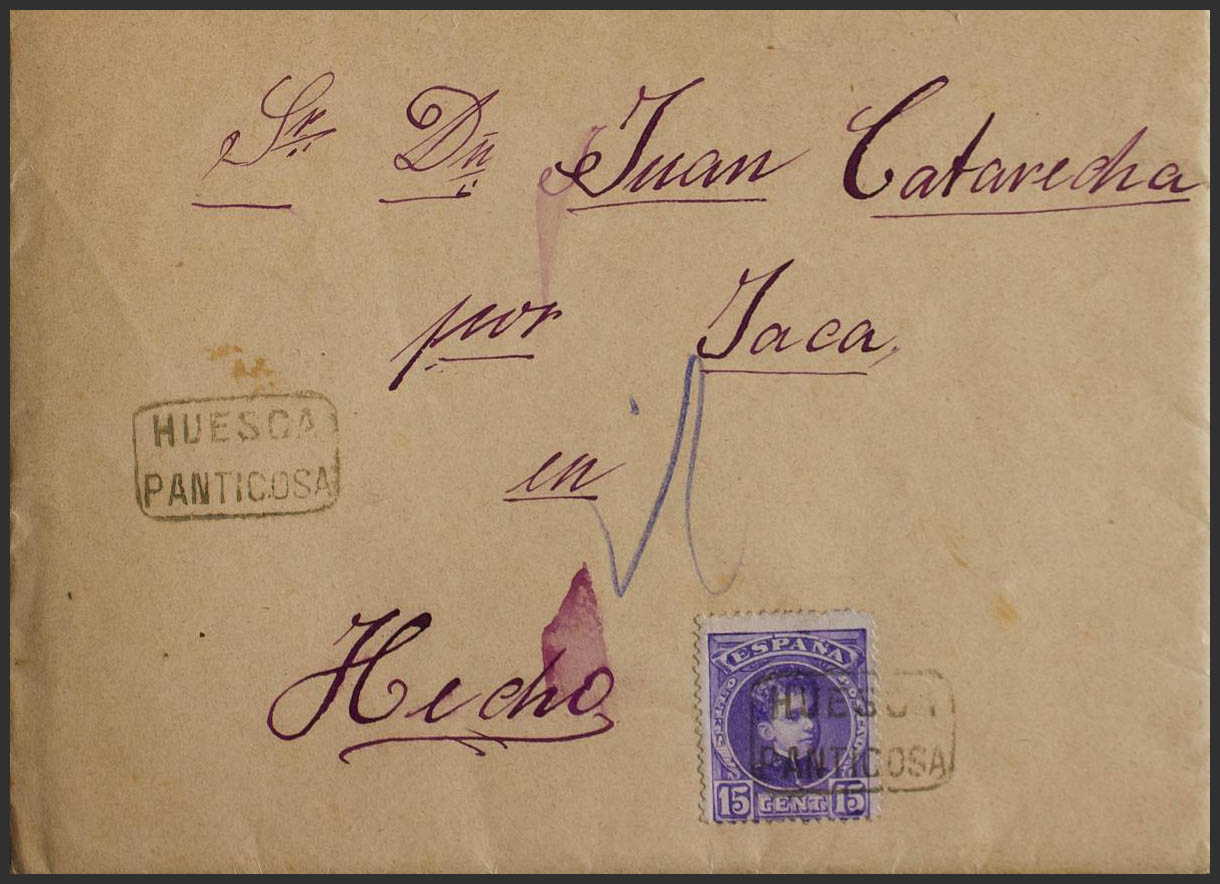 Sr. Dn. Juan Catarecha
por Jaca,
HUESCA
PANTICOSA
en
Hecho
ESPAÑA
HUESCA
PANTICOSA
15 CENT. 15